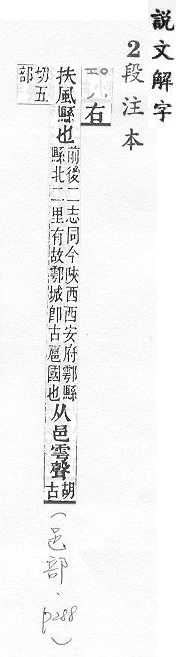 說文解字
2段注本
右
扶風縣也
前後二志同今陝西西安府鄠縣
縣北二里有故鄠城卽古扈國也
从邑雩聲
胡
古
切五
部
(邑部．p288)